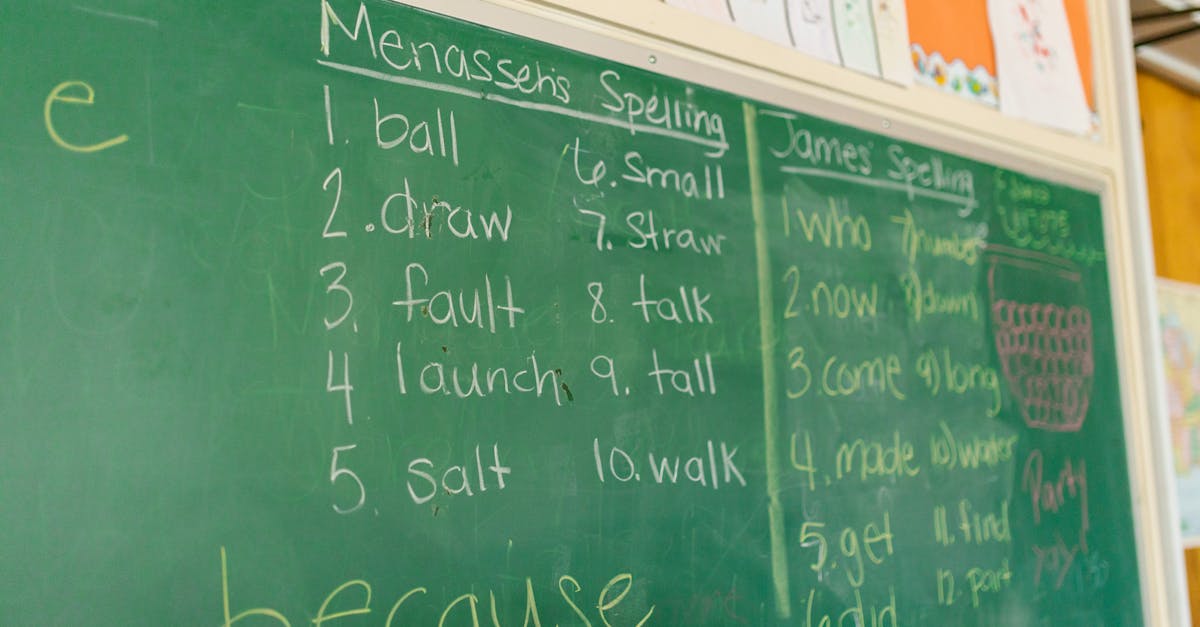 e
Menasseh's Spelling
1. ball
2. draw
3. fault
4 launch
5. salt
6. Small
7. Straw
8. talk
9. tall
10. walk
because
James' Spelling
1 who
2. now
3. come
4. made
5. get
6 did
7) number
8) down
9) long
10) water
11. find
12. part
Party
yay!